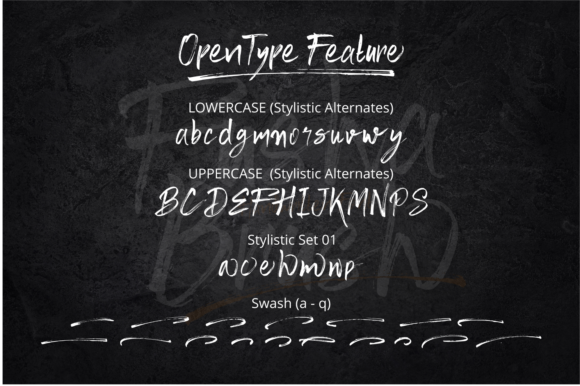 OpenType Feature
LOWERCASE (Stylistic Alternates)
abcdgmnorsuvwy
UPPERCASE (Stylistic Alternates)
BCDEFHIJKMNPS
Stylistic Set 01
aoehmwnp
Swash (a - q)
Brush